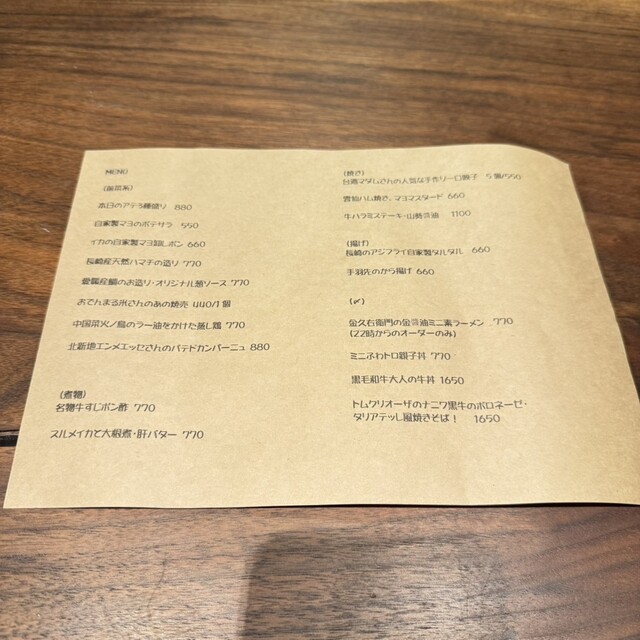 MENU
(御菜系)
本日のアテ3種盛り 880
自家製マヨのポテサラ 550
イカの自家製マヨ和しポン 660
長崎産天然ハマチの造り 770
愛媛産鯛のお造り・オリジナル葱ソース 770
おでんまる米さんのあの焼売 440/1個
中国菜火ノ鳥のラー油をかけた蒸し鶏 770
北新地エンメエッセさんのパテドカンパーニュ 880
(煮物)
名物牛すじポン酢 770
スルメイカと大根煮・肝バター 770
(焼き)
台湾マダムさんの人気な手作り一口餃子 5個/550
雲仙ハム焼き、マヨマスタード 660
牛ハラミステーキ・山葵醤油 1100
(揚げ)
長崎のアジフライ自家製タルタル 660
手羽先のから揚げ 660
(〆)
金久右衛門の金醤油ミニ素ラーメン 770
(22時からのオーダーのみ)
ミニふわトロ親子丼 770
黒毛和牛大人の牛丼 1650
トムクリオーザのナニワ黒牛のボロネーゼ・
タリアテッレ風焼きそば! 1650